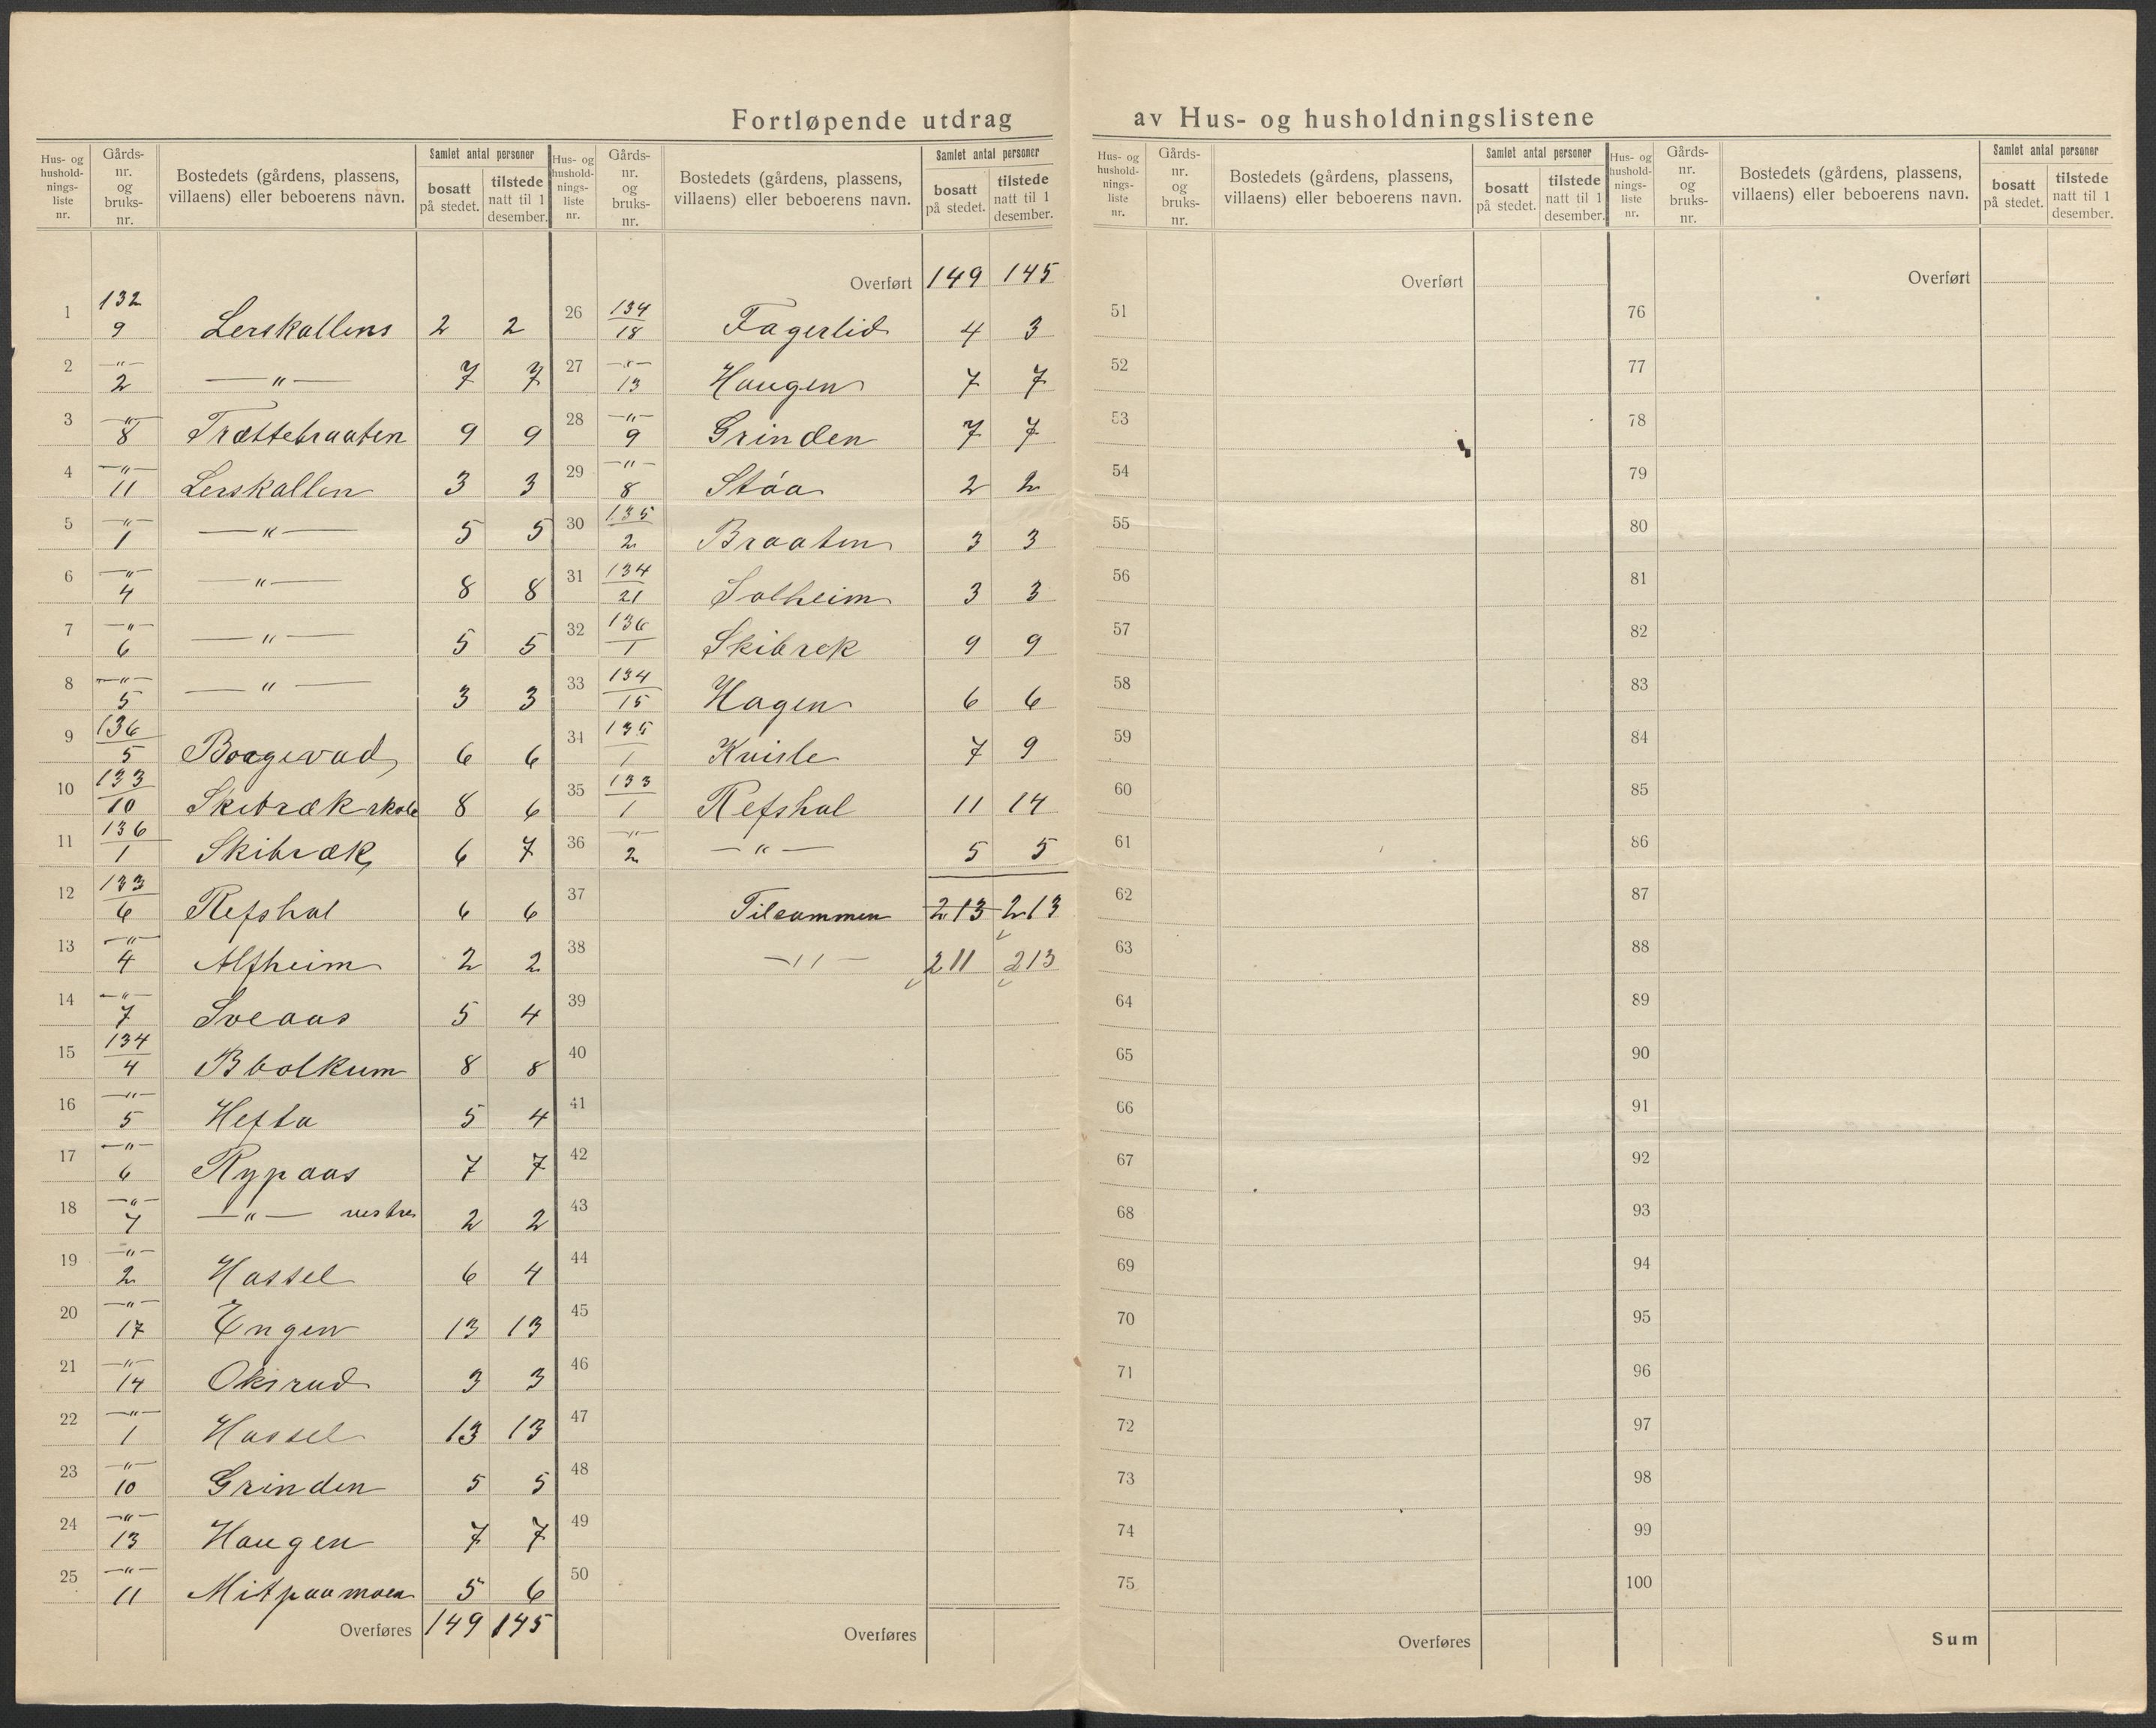 Fortløpende utdrag av Hus- og husholdningslistene
Hus- og husholdnings- liste nr. | Gårds- nr. og bruks- nr. | Bostedets (gårdens, plassens, villaens) eller beboerens navn. | Samlet antal personer | bosatt på stedet. | tilstede natt til 1 desember.
1 132/9 Lerskallens 2 2
2 —"—/2 —"— 7 7
3 —"—/8 Trættebraaten 9 9
4 —"—/11 Lerskallen 3 3
5 —"—/1 —"— 5 5
6 —"—/4 —"— 8 8
7 —"—/6 —"— 5 5
8 —"—/5 —"— 3 3
9 136/5 Baagevad 6 6
10 133/10 Skibræk skole 8 6
11 136/1 Skibræk 6 7
12 133/6 Refshal 6 6
13 —"—/4 Alfheim 2 2
14 —"—/7 Sveaas 5 4
15 134/4 Bbolkum 8 8
16 —"—/5 Hefta 5 4
17 —"—/6 Rypaas 7 7
18 —"—/7 —"— vestre 2 2
19 —"—/2 Hassel 6 4
20 —"—/17 Engen 13 13
21 —"—/14 Oksrud 3 3
22 —"—/1 Hassel 13 13
23 —"—/10 Grinden 5 5
24 —"—/13 Haugen 7 7
25 —"—/11 Mitpaamoen 5 6
Overføres 149 145
Hus- og husholdnings- liste nr. | Gårds- nr. og bruks- nr. | Bostedets (gårdens, plassens, villaens) eller beboerens navn. | Samlet antal personer | bosatt på stedet. | tilstede natt til 1 desember.
Overført 149 145
26 134/18 Fagerlid 4 3
27 —"—/13 Haugen 7 7
28 —"—/9 Grinden 7 7
29 —"—/8 Støa 2 2
30 135/2 Braaten 3 3
31 134/21 Solheim 3 3
32 136/1 Skibrek 9 9
33 134/15 Hagen 6 6
34 135/1 Kvisle 7 9
35 133/1 Refshal 11 14
36 —"—/2 —"— 5 5
37 Tilsammen 213 213
38 —"— 211 213
39
40
41
42
43
44
45
46
47
48
49
50
Overføres
Hus- og husholdnings- liste nr. | Gårds- nr. og bruks- nr. | Bostedets (gårdens, plassens, villaens) eller beboerens navn. | Samlet antal personer | bosatt på stedet. | tilstede natt til 1 desember.
Overført
51
52
53
54
55
56
57
58
59
60
61
62
63
64
65
66
67
68
69
70
71
72
73
74
75
Overføres
Hus- og husholdnings- liste nr. | Gårds- nr. og bruks- nr. | Bostedets (gårdens, plassens, villaens) eller beboerens navn. | Samlet antal personer | bosatt på stedet. | tilstede natt til 1 desember.
Overført
76
77
78
79
80
81
82
83
84
85
86
87
88
89
90
91
92
93
94
95
96
97
98
99
100
Sum